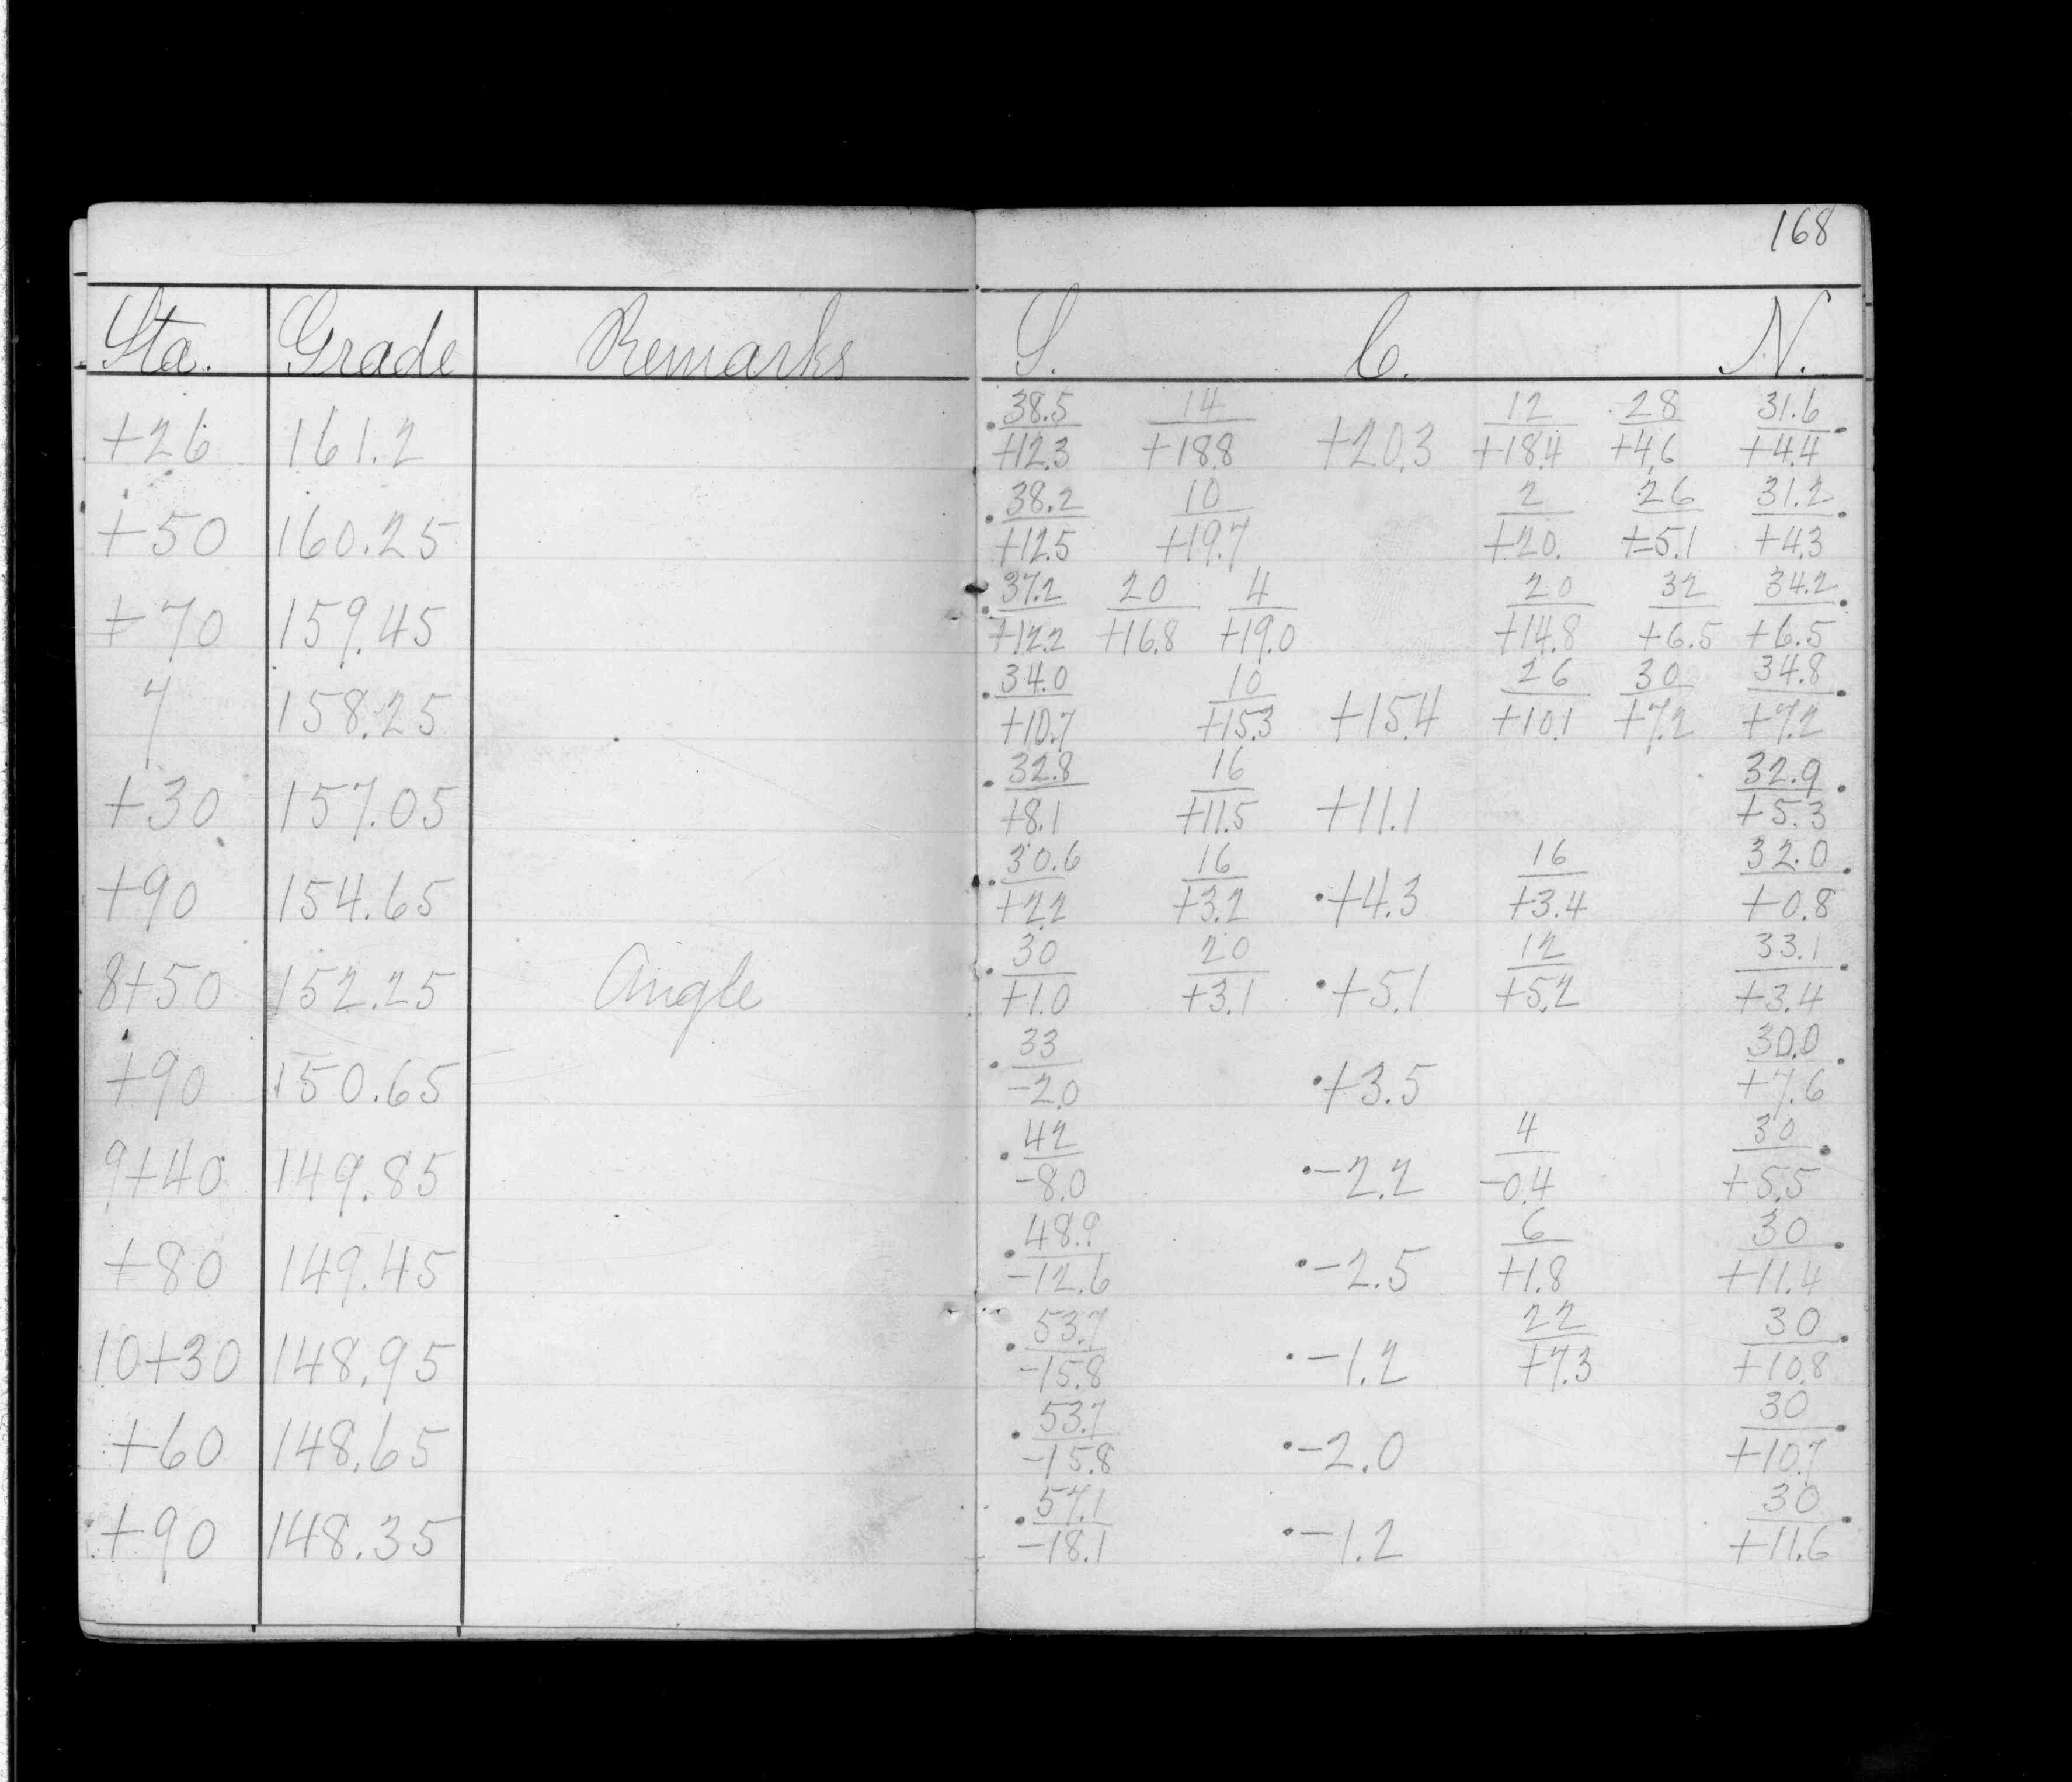 168
Sta. Grade Remarks S. C. N.
38.5 14 12 28 31.6
+26 161.2 +12.3 +18.8 +20.3 +18.4 +4.6 +4.4
38.2 10 2 26 31.2
+50 160.25 +12.5 +19.7 +20. +5.1 +4.3
37.2 20 4 20 32 34.2
+70 159.45 +12.2 +16.8 +19.0 +14.8 +6.5 +6.5
34.0 10 26 30 34.8
7 158.25 +10.7 +15.3 +15.4 +10.1 +7.2 +7.2
32.8 16 32.9
+30 157.05 +8.1 +11.5 +11.1 +5.3
30.6 16 16 32.0
+90 154.65 +2.2 +3.2 +4.3 +3.4 +0.8
30 20 12 33.1
8+50 152.25 Angle +1.0 +3.1 +5.1 +5.2 +3.4
33 30.0
+90 150.65 -2.0 +3.5 +7.6
42 4 30
9+40 149.85 -8.0 -2.2 -0.4 +5.5
48.9 6 30
+80 149.45 -12.6 -2.5 +1.8 +11.4
53.7 22 30
10+30 148.95 -15.8 -1.2 +7.3 +10.8
53.7 30
+60 148.65 -15.8 -2.0 +10.7
57.1 30
+90 148.35 -18.1 -1.2 +11.6